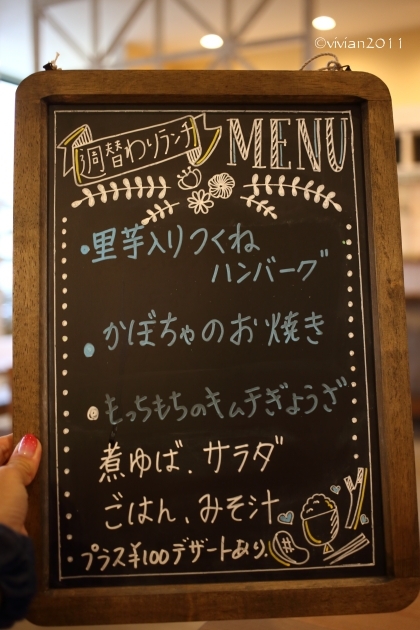 ©vivian2011
週替わりランチ MENU
・里芋入りつくね
ハンバーグ
・かぼちゃのお焼き
・もっちもちのキムチぎょうざ
煮ゆば、サラダ
ごはん、みそ汁
プラス¥100デザートあり、